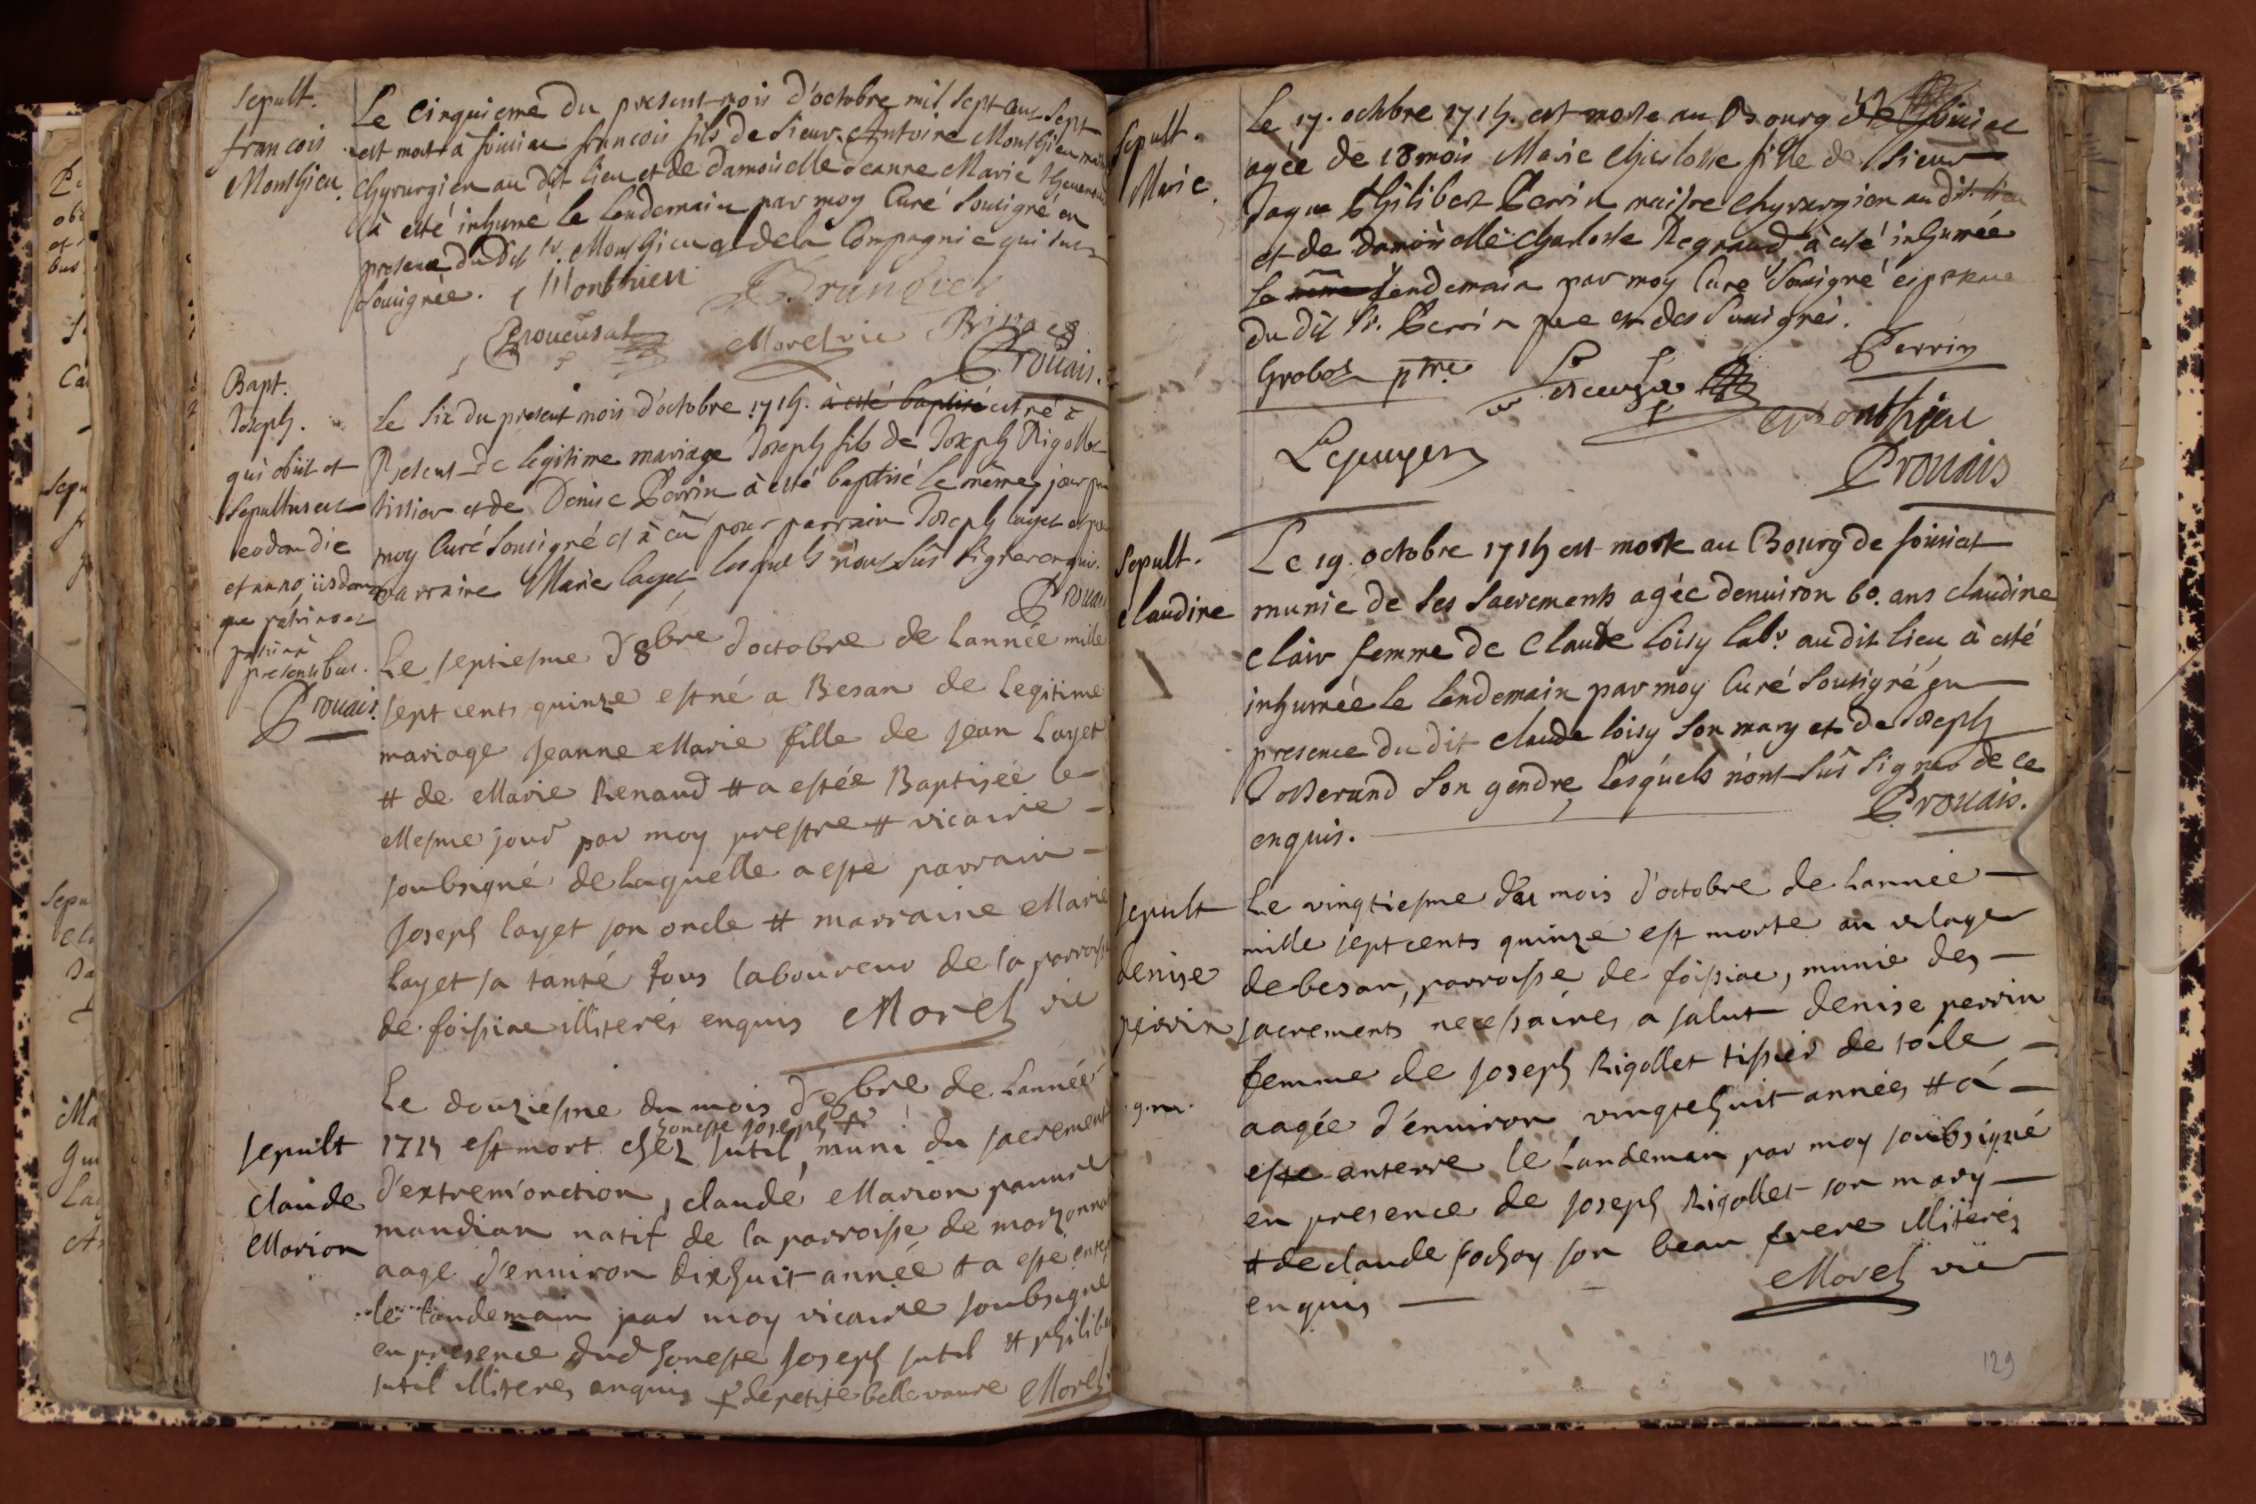 sepult.
francois
Monthieu.
Le Cinquieme du present mois d'octobre mil sept cens sept
est mort à foissiac francois fils de Sieur Antoine Monthieu
Chyrurgien au dit lieu et de damoiselle Jeanne Marie
à esté inhumé le lendemain par moy Curé Sousigné en
presence du dit Sr. Monthieu et de la Compagnie qui s'est
sousignée. Monthieu
Morel vic
Prouais.
Bapt.
Joseph.
qui obiit et
sepultus est
eodem die
et anno, iisdem
que patrino et
presentibus.
Prouais.
Le six du present mois d'octobre 1715. à esté baptisé est né à
Besan de legitime mariage Joseph fils de Joseph Rigollet
tissier et de Denise Perrin à esté baptisé le même jour par
moy Curé Sousigné et à eû pour parrain Joseph layet et pour
marraine Marie layet lesquels n'ont sû signer enquis.
Prouais
Le septiesme d'8bre d'octobre de Lannée mille
sept cents quinze est né a Besan de Legitime
mariage Jeanne Marie fille de Jean Layet
# de Marie Renaud # a estée Baptisée le
Mesme jour par moy prestre # vicaire
soubsigné de Laquelle a este parrain
Joseph layet son oncle # marraine Marie
Layet sa tante tous laboureur de la parroisse
de foissiac illiterés enquis Morel vic
sepult
Claude
Marion
Le douziesme du mois d'8bre de Lannée
honeste joseph
1715 est mort chez sutil muni du sacrement
d'extrem'onction, claude Marion pauvre
mandian natif de la parroisse de marzonnas
aage d'environ dixhuit année # a este
le landemain par moy vicaire soubsigné
en presence dud honeste Joseph sutil # philibe
sutil illiteres enquis # de petite bellevaure Morel
Sepult.
Marie.
Le 17. octobre 1715. est morte au Bourg de foissiac
agée de 18 mois Marie Charlotte fille de Sieur
Jaque Philibert Perrin maistre Chyrurgien au dit lieu
et de damoiselle Charlotte Regnaud à esté inhumée
Le même Lendemain par moy Curé Sousigné en presence
du dit Sr. Perrin pere et des sousignés.
Perrin
Grobos ptre
Monthieu
Prouais
Sepult.
Claudine
Le 19. octobre 1715 est morte au Bourg de foissiat
munie de ses Sacrements agée denuiron 60. ans claudine
Clair femme de Claude Loisy labr. au dit lieu à esté
inhumée le lendemain par moy Curé Sousigné en
presence du dit Claude loisy son mary et de Joseph
Josserand son gendre, lesquels n'ont sû signer de ce
enquis.
Prouais.
sepult
denise
perrin
g.m.
Le vingtiesme du mois d'octobre de Lannée
mille sept cents quinze est morte au vilage
de besan, parroisse de foissiac, munie des
sacrements necessaires a salut denise perrin
femme de Joseph Rigollet tissier de toile
aagée d'enuiron vingtehuit années # a
este anterre le Landemain par moy soubsigné
en presence de Joseph Rigollet son mary
# de claude fochoy son beau frere illiterés
enquis
Morel vic
129